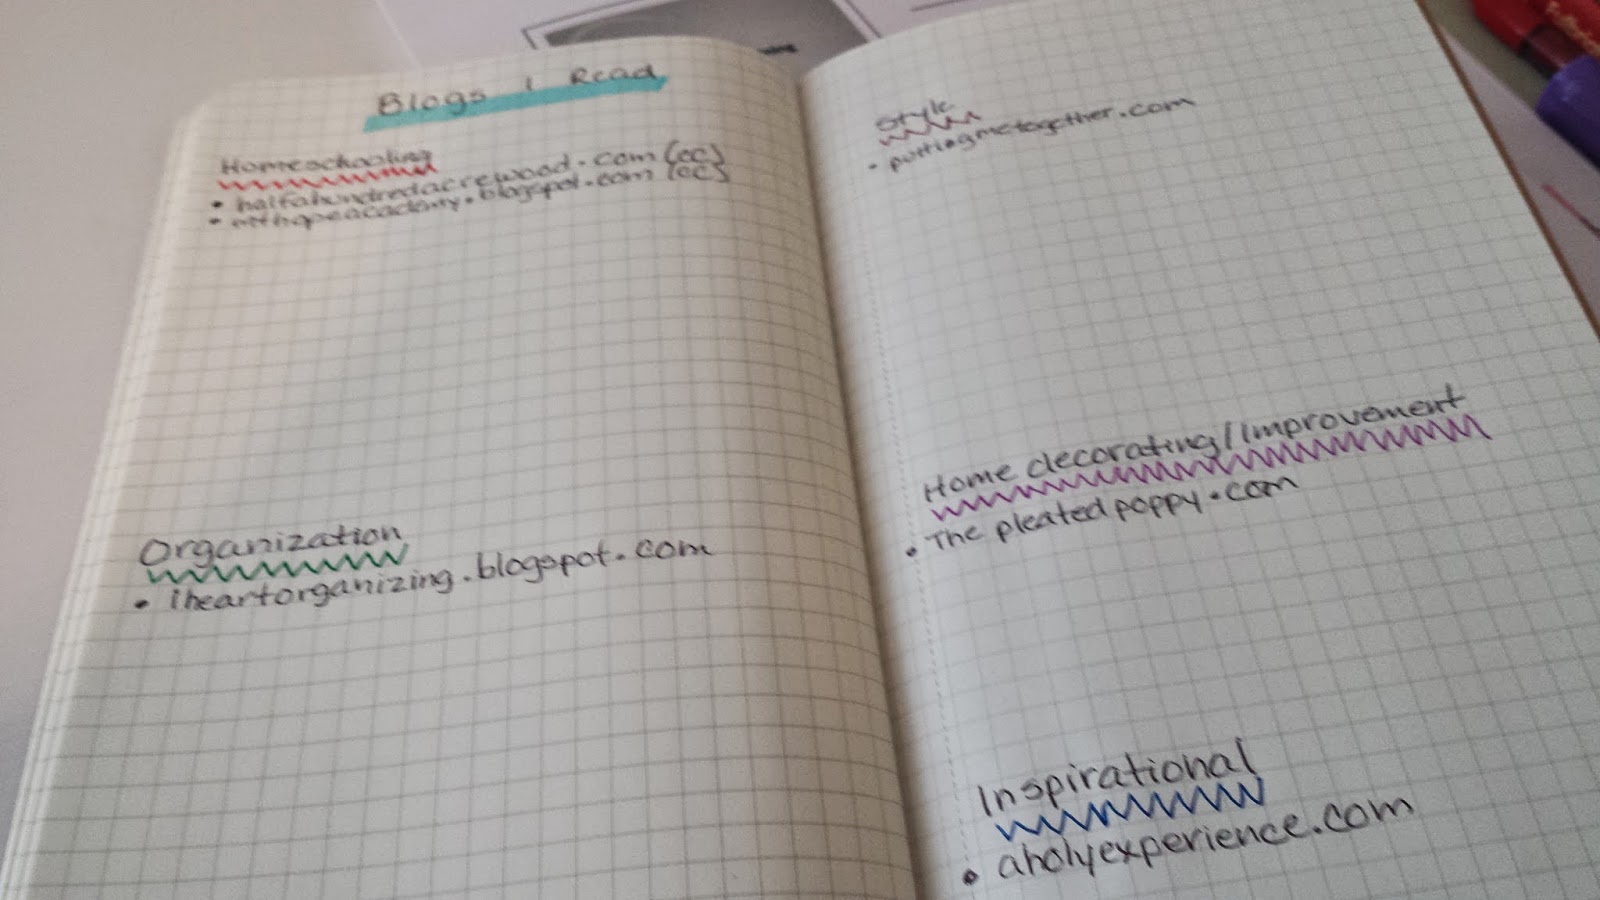 Blogs I Read
Homeschooling
• halfahundredacrewood.com (cc)
• .blogspot.com (cc)
Organization
• iheartorganizing.blogspot.com
Style
• puttingmetogether.com
Home decorating/improvement
• The pleatedpoppy.com
Inspirational
• aholyexperience.com